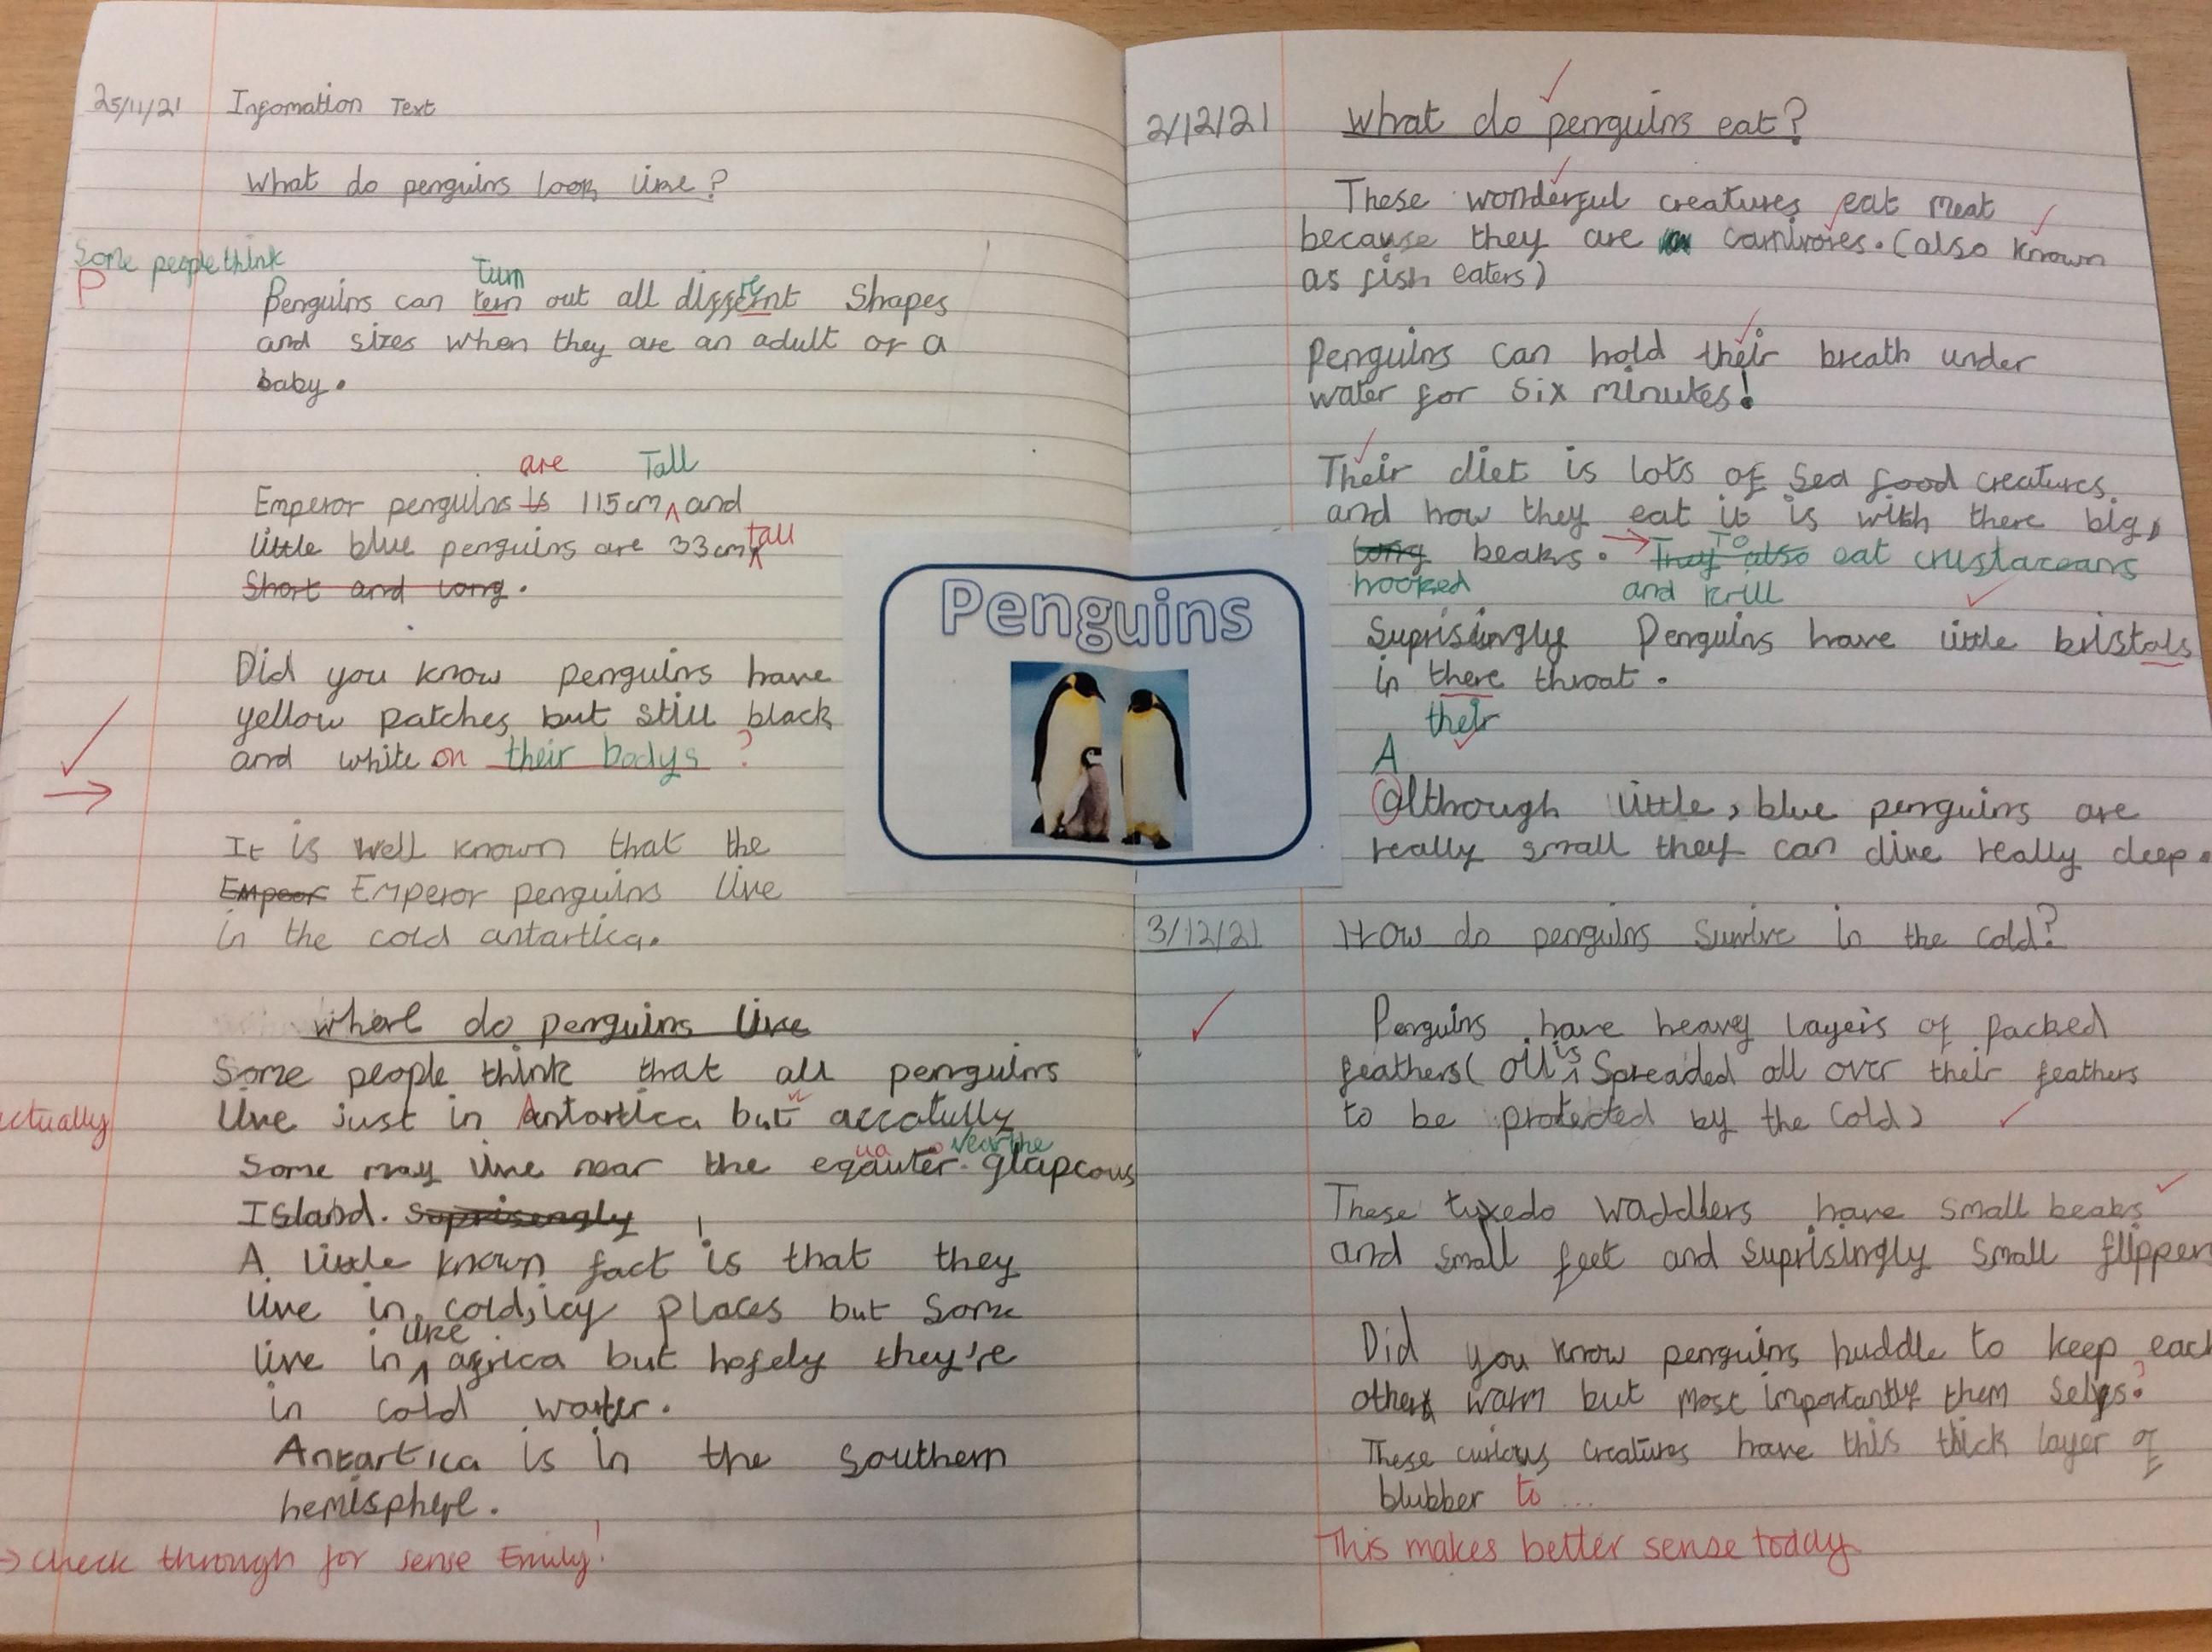 25/11/21 Infomation Text
What do penguins look like?
Some people think
P
turn re
Penguins can tern out all differnt shapes
and sizes when they are an adult or a
baby.
are Tall
Emperor penguins is 115cm and
little blue penguins are 33cm tall
Short and long.
Did you know penguins have
yellow patches but still black
and white on their bodys ?
It is well known that the
Empeor Emperor penguins live
in the cold antartica.
where do penguins live
Some people think that all penguins
live just in Antartica but accatully
actually
ua near the
Some may live near the eqauter. glapcous
Island. Suprisengly
A little known fact is that they
live in cold, icy places but some
like
live in africa but hofely they're
in cold water.
Antartica is in the southern
hemisphere.
→ check through for sense Emily!
Penguins
2/12/21 What do penguins eat?
These wonderful creatures eat meat
because they are carnivores. (also known
as fish eaters)
Penguins can hold their breath under
water for six minutes!
Their diet is lots of sea food creatures.
and how they eat it is with there big,
To
long beaks. → They also eat crustaceans
hooked and krill
Suprisingly Penguins have little bristals
in there throat.
their
A
although little, blue penguins are
really small they can dive really deep.
3/12/21 How do penguins survive in the cold?
Penguins have heavy layers of packed
is
feathers( oil spreaded all over their feathers
to be protected by the cold)
These tuxedo waddlers have small beaks
and small feet and suprisingly small flippers
Did you know penguins huddle to keep each
other warm but most importantly them selfs.?
These curious creatures have this thick layer of
blubber to ...
This makes better sense today